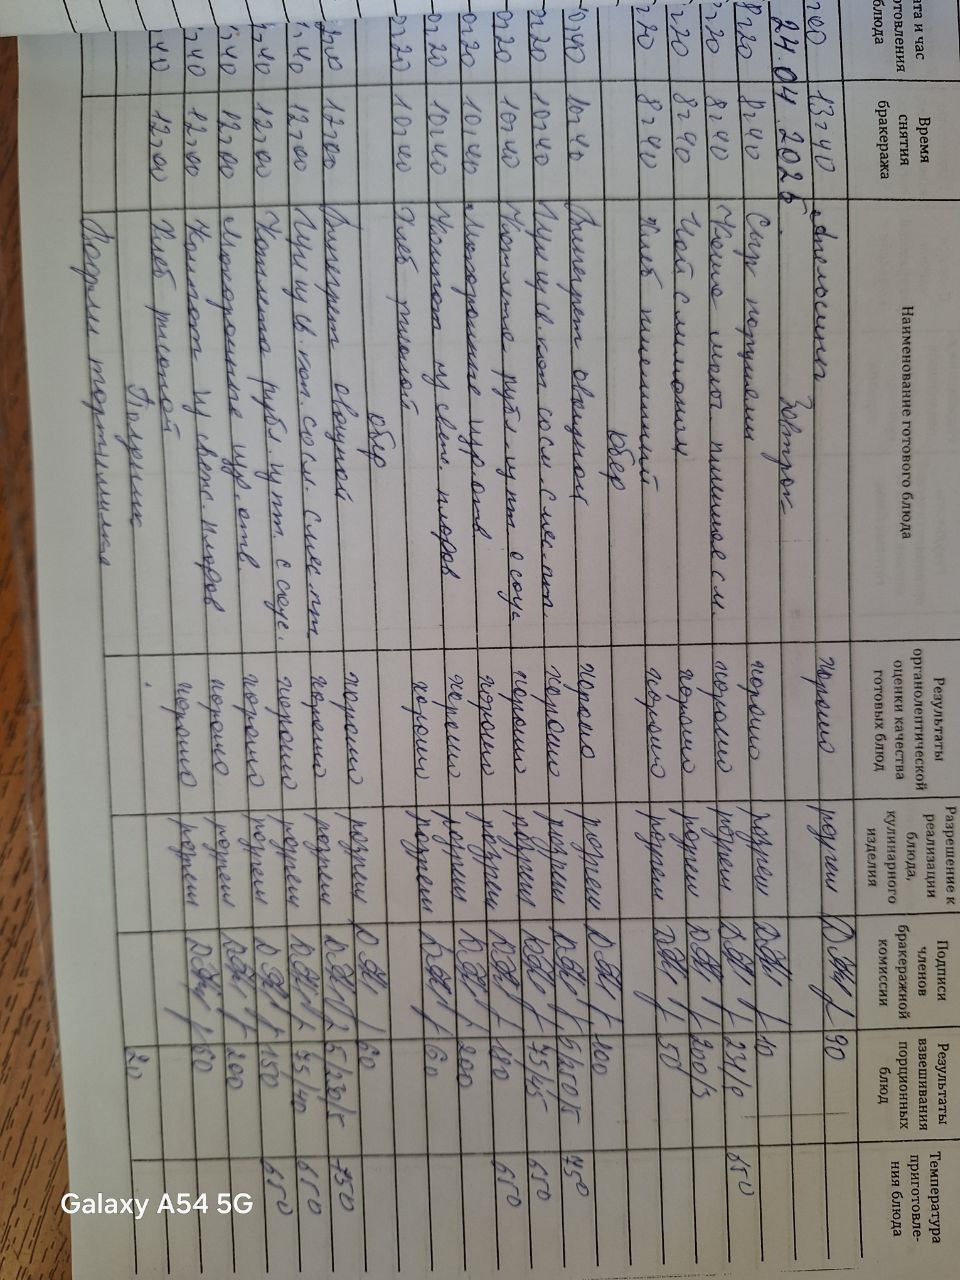 ата и час отовления блюда | Время снятия бракеража | Наименование готового блюда | Результаты органолептической оценки качества готовых блюд | Разрешение к реализации блюда, кулинарного изделия | Подписи членов бракеражной комиссии | Результаты взвешивания порционных блюд | Температура приготовления блюда
13-40 Апельсины хорошо разреш 90
24.04.2025. Завтрак
8-20 8-40 Сыр порциями хорошо разреш 10
-20 8-40 Каша молоч пшенная с м. хорошо разреш
-20 8-40 Чай с лимоном хорошо разреш 200/5
-20 8-40 Хлеб пшеничный хорошо разреш 50
Обед
10-40 Винегрет овощной хорошо разреш 100
-20 10-40 Щи из св. кап со см. с мяс. пт. хорошо разреш 5/250/5 75°
-20 10-40 Котлета рубл. из пт с соус хорошо разреш 75/45 65°
-20 10-40 Макаронные изд отв хорошо разреш 180 65°
-20 10-40 Компот из свеж. плодов хорошо разреш 200
-20 10-40 Хлеб ржаной хорошо разреш 60
Обед
12-00 Винегрет овощной хорошо разреш 60
-40 12-00 Щи из св. кап. со см. с мяс. пт хорошо разреш 75°
-40 12-00 Котлета рубл. из пт. с соус. хорошо разреш 75/40 65°
-40 12-00 Макаронные изд. отв. хорошо разреш 150 65°
-40 12-00 Компот из свеж. плодов хорошо разреш 200
-40 12-00 Хлеб ржаной хорошо разреш
Полдник
20
Galaxy A54 5G